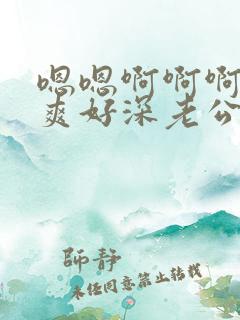 嗯嗯啊啊啊
爽好深老公
師静
未经同意禁止转载